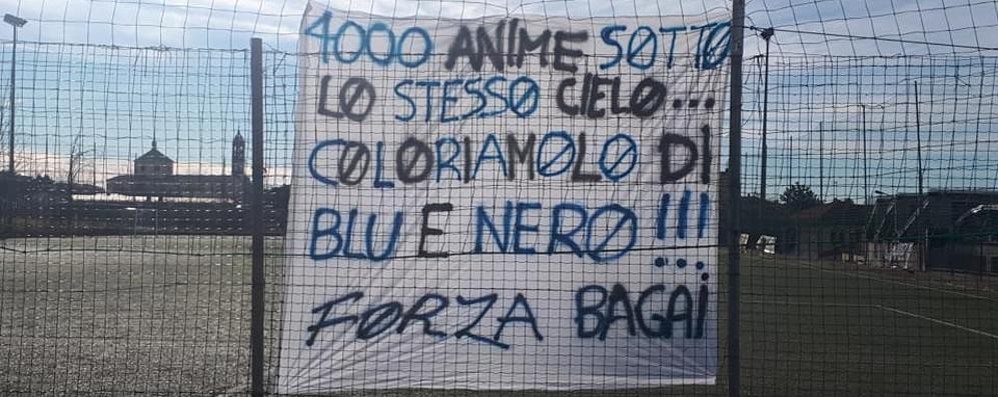 4000 ANIME SOTTO
LO STESSO CIELO...
COLORIAMOLO DI
BLU E NERO!!!
FORZA BAGAI